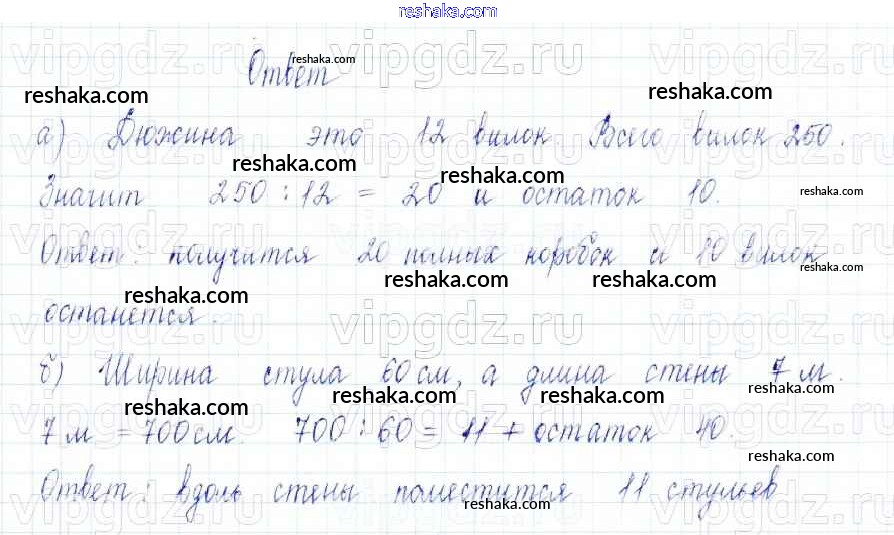 reshaka.com
Ответ
reshaka.com
reshaka.com
reshaka.com
vipgdz.ru vipgdz.ru vipgdz.ru
а) Дюжина это 12 вилок. Всего вилок 250.
reshaka.com
reshaka.com
reshaka.com
Значит 250 : 12 = 20 и остаток 10.
vipgdz.ru vipgdz.ru vipgdz.ru
Ответ: получится 20 полных коробок и 10 вилок
reshaka.com
reshaka.com
reshaka.com
reshaka.com
останется.
vipgdz.ru vipgdz.ru vipgdz.ru
б) Ширина стула 60 см, а длина стены 7 м.
reshaka.com
reshaka.com
reshaka.com
7 м = 700 см. 700 : 60 = 11 + остаток 40.
reshaka.com
reshaka.com
reshaka.com
Ответ: вдоль стены поместится 11 стульев
vipgdz.ru vipgdz.ru vipgdz.ru